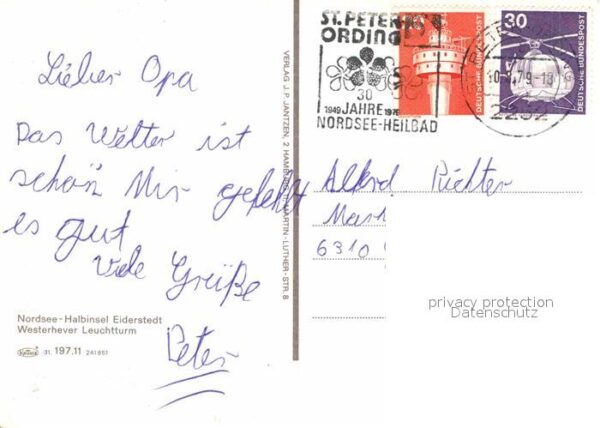 Lieber Opa
Das Wetter ist
schön Mir gefehlt
es gut
Viele Grüße
Peter
Nordsee-Halbinsel Eiderstedt
Westerhever Leuchtturm
(31. 197.11 241 661
VERLAG J. P. JANTZEN, 2 HAMBURG, MARTIN-LUTHER-STR. 8
ST. PETER
ORDING
30
1949 JAHRE 1979
NORDSEE-HEILBAD
DEUTSCHE BUNDESPOST
30
DEUTSCHE BUNDESPOST
2252
Alfred Richter
6310
privacy protection
Datenschutz